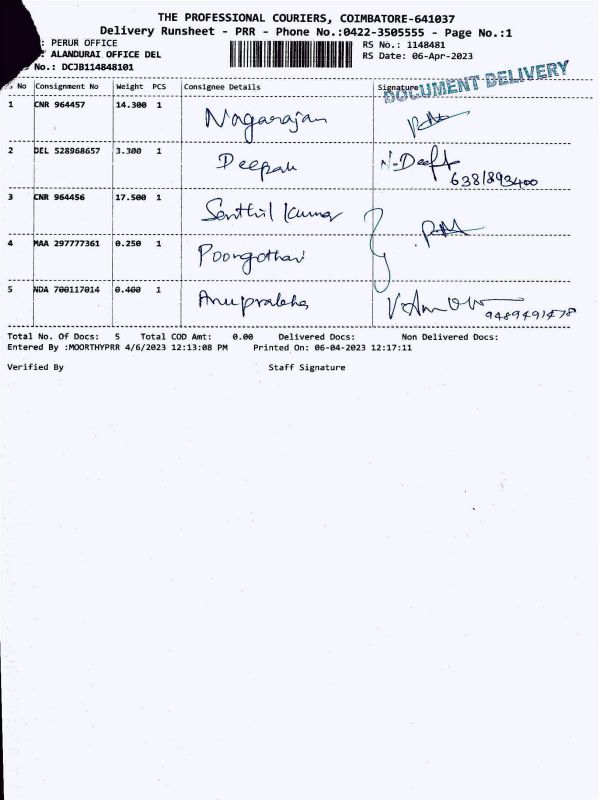 THE PROFESSIONAL COURIERS, COIMBATORE-641037
Delivery Runsheet - PRR - Phone No.:0422-3505555 - Page No.:1
: PERUR OFFICE RS No.: 1148481
: ALANDURAI OFFICE DEL RS Date: 06-Apr-2023
No.: DCJB114848101
DOCUMENT DELIVERY
No Consignment No Weight PCS Consignee Details Signature
1 CNR 964457 14.300 1 Nagarajan
2 DEL 528968657 3.300 1 Deepak N. Deepk
6381893400
3 CNR 964456 17.500 1 Senthil Kumar
4 MAA 297777361 0.250 1 Poongothai
5 NDA 700117014 0.400 1 Anuprabha
9489491478
Total No. Of Docs: 5 Total COD Amt: 0.00 Delivered Docs: Non Delivered Docs:
Entered By :MOORTHYPRR 4/6/2023 12:13:08 PM Printed On: 06-04-2023 12:17:11
Verified By Staff Signature